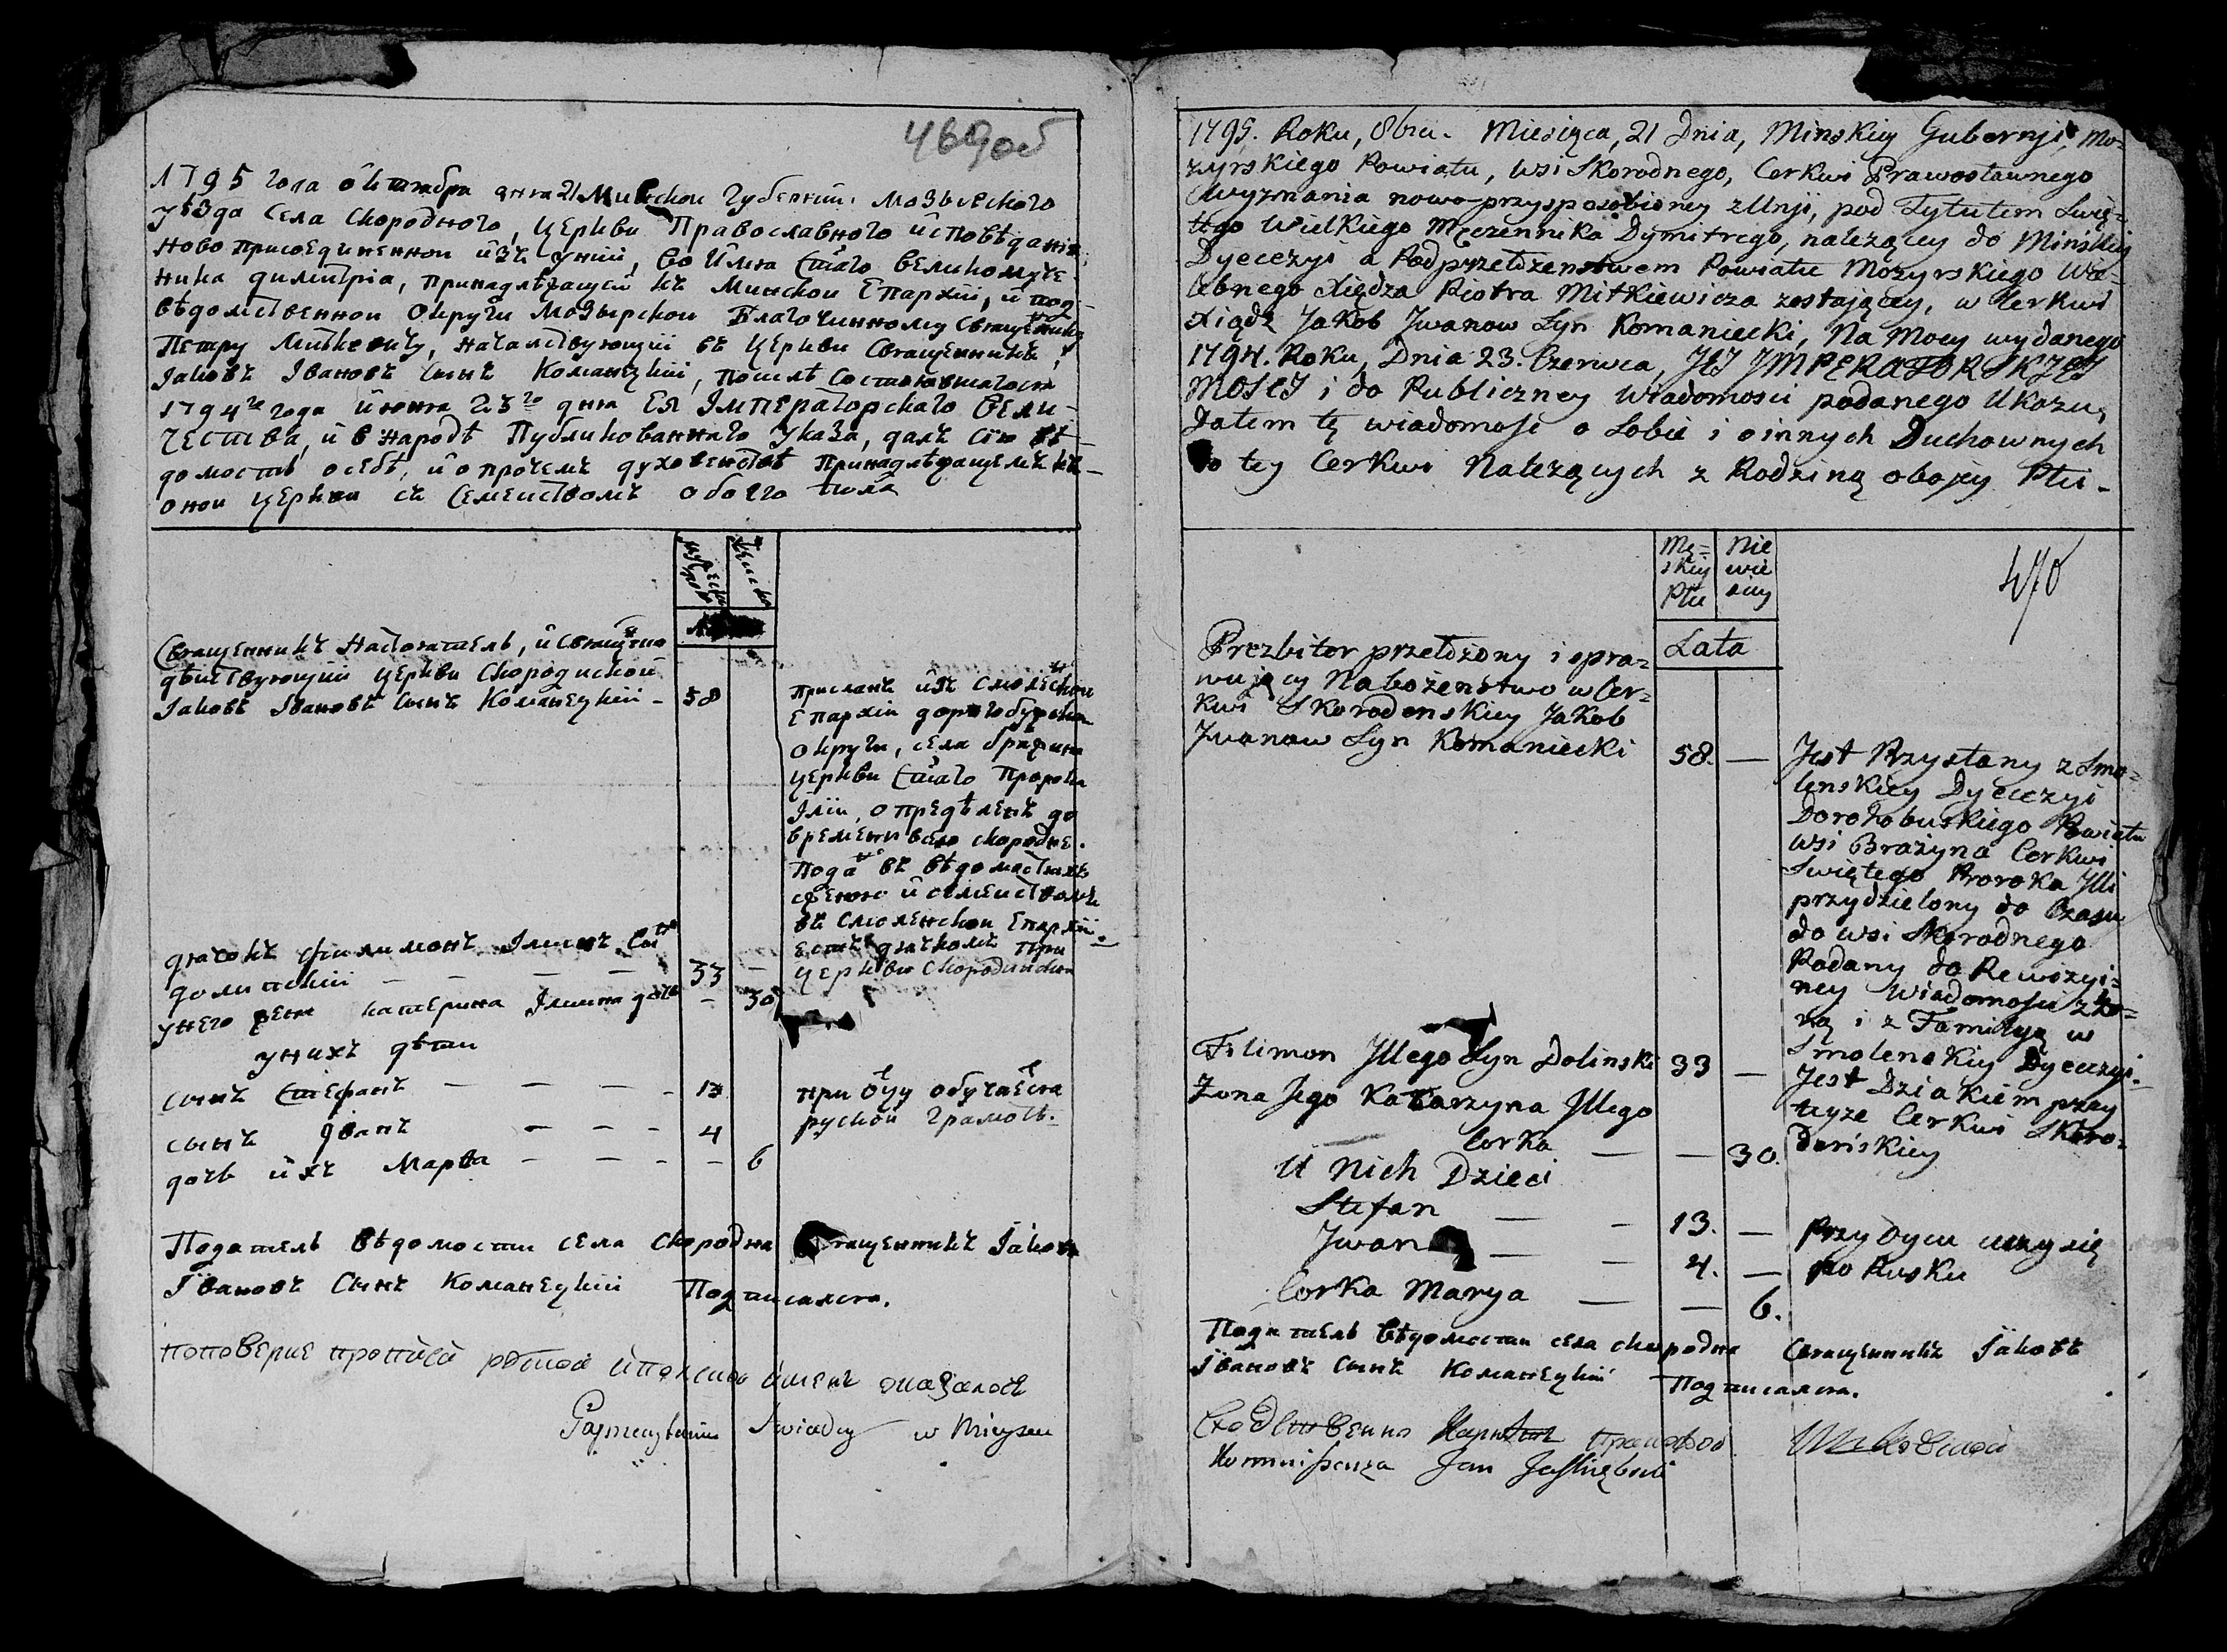 469об
1795 года октября дня 21 Минской Губернии. Мозырского
уѣзда села Скородного, Церкви Православного исповѣданія
ново присоединенной изъ уніи, во имя Стаго великомуче-
ника Димитріа, принадлѣжащей къ Минской Епархіи, и под-
вѣдомственной округи Мозырской Благочинному Священнику
Петру Миткевичу, началствующій въ Церкви Священникъ
Іаковъ Івановъ сынъ Команецкій, послѣ состоявшагося
1794го года июня 23го дня Ея Імператорскаго Вели-
чества, и в народъ Публикованнаго Указа, далъ сію вѣ-
домость о себѣ, и о прочемъ духовенствѣ принадлѣжащемъ къ
оной церкви съ семействомъ обоего пола
мужеска
женска
Священникъ настоятель, и священно
дѣйствующій церкви Скородиской
Іаковъ Івановъ сынъ Команецкій - 58
присланъ изъ Смоленской
Епархіи дорогобужской
округи, села бражина
церкви Стаго Пророка
Іліи, опредѣленъ до
времени в село скородне.
Поданъ въ вѣдомостяхъ
съ женою и семействомъ
въ Смоленской Епархіи.
дячокъ Филимонъ Ілиинъ сынъ
долинскій - - - - 33 -
есть дячкомъ при
церкви Скородинской
у него жена катерина Ілиина дочь - 30
у нихъ дѣти
сынъ Стефанъ - - - - 13
при отцу обучается
руской грамотѣ.
сынъ Іванъ - - - 4
дочь ихъ Марѳа - - - - 6
Податель вѣдомости села скородна Священникъ Іаковъ
Івановъ Сынъ Команецкій Подписался.
поповерке
w Mieyscu
470
1795. Roku, 8bra. Miesiąca, 21 Dnia, Minskiey Gubernji, Mo-
zyrskiego Powiatu, wsi Skorodnego, Cerkwi Prawosławnego
wyznania nowo-przysposobioney z Unji, pod Tytułem Swię-
tego Wielkiego Męczennika Dymitrego, należącey do Minskiey
Dyecezyi a Pod przełożenstwem Powiatu Mozyrskiego Wie-
lebnego Xiędza Piotra Mitkiewicza zostającey, w Cerkwi
Xiądz Jakob Jwanow Syn Komaniecki, Na Mocy wydanego
1794. Roku, Dnia 23. Czerwca, JEJ JMPERATORSKIEJ
MOSCI i do Publiczney wiadomosci podanego Ukazu,
Dałem tę wiadomość o Sobie i o innych Duchownych
do tey Cerkwi Należących z Rodziną obojey Płci-
Mę=
skiey
Płci
Nie
wie
sciey
Lata
Prezbiter przełożony i spra=
wujący Nabożeństwo w Cer=
kwi Skorodenskiey Jakob
Jwanow Syn Komaniecki 58. —
Jest Przysłany z Smo=
lenskiey Dyecezyi
Dorohobuskiego Powiatu
wsi Brażyna Cerkwi
Swiętego Proroka Jlli
przydzielony do Czasu
do wsi Skorodnego
Podany do Rewizyi=
ney Wiadomosci z żo=
ną i z Familyą w
Smolenskiey Dyecezyi.
Filimon Jllego Syn Dolinski 33 —
Jest Dziakiem przy
teyże Cerkwi Skoro=
deńskiey
Zona Jego Katarzyna Jllego
Corka — — 30.
U Nich Dzieci
Stefan — - 13. —
przy Oycu uczy się
po Rusku
Jwan — - 4. —
Corka Marya — — 6.
Податель вѣдомости села скородна Священникъ Іаковъ
Івановъ сынъ Команецкій Подписался.
Jan